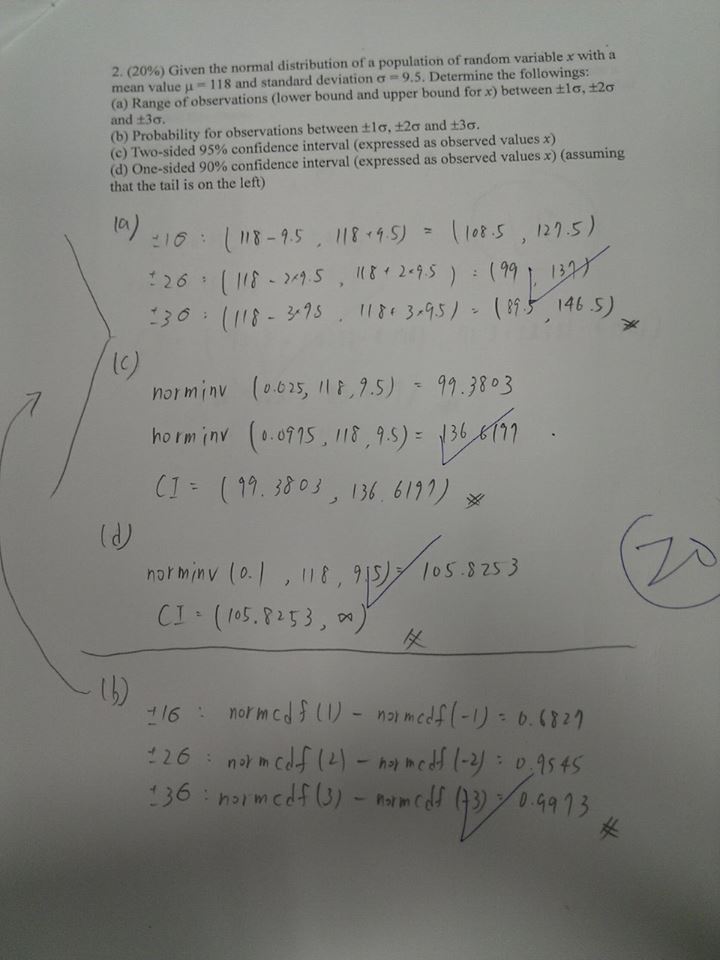 2. (20%) Given the normal distribution of a population of random variable x with a
mean value μ = 118 and standard deviation σ = 9.5. Determine the followings:
(a) Range of observations (lower bound and upper bound for x) between ±1σ, ±2σ
and ±3σ.
(b) Probability for observations between ±1σ, ±2σ and ±3σ.
(c) Two-sided 95% confidence interval (expressed as observed values x)
(d) One-sided 90% confidence interval (expressed as observed values x) (assuming
that the tail is on the left)
(a) ±1σ : (118-9.5 , 118+9.5) = (108.5 , 127.5)
±2σ : (118 - 2×9.5 , 118 + 2×9.5) : (99 , 137)
±3σ : (118 - 3×9.5 , 118 + 3×9.5) = (89.5 , 146.5)
(c)
norminv (0.025, 118, 9.5) = 99.3803
norminv (0.0975, 118, 9.5) = 136.6197
CI = (99.3803, 136.6197)
(d)
norminv (0.1 , 118, 9.5) = 105.8253
CI = (105.8253, ∞)
20
(b)
±1σ : normcdf(1) - normcdf(-1) = 0.6827
±2σ : normcdf(2) - normcdf(-2) = 0.9545
±3σ : normcdf(3) - normcdf(-3) = 0.9973